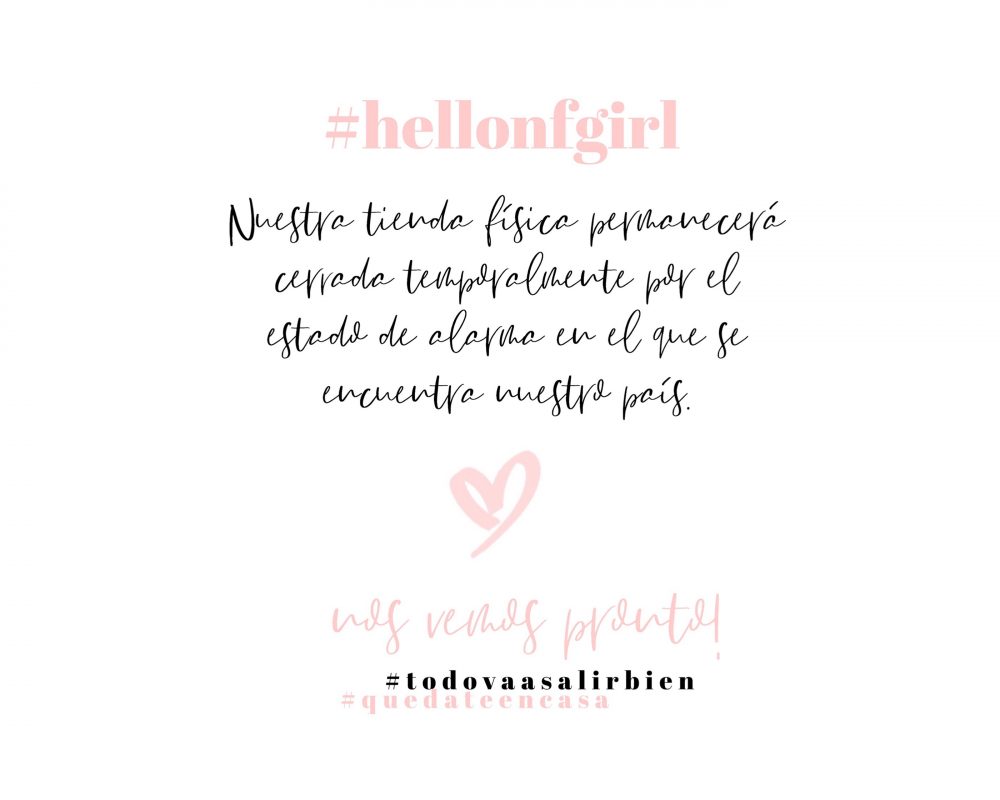 #hellonfgirl
Nuestra tienda física permanecerá
cerrada temporalmente por el
estado de alarma en el que se
encuentra nuestro país.
nos vemos pronto!
#todovaasalirbien
#quedateencasa